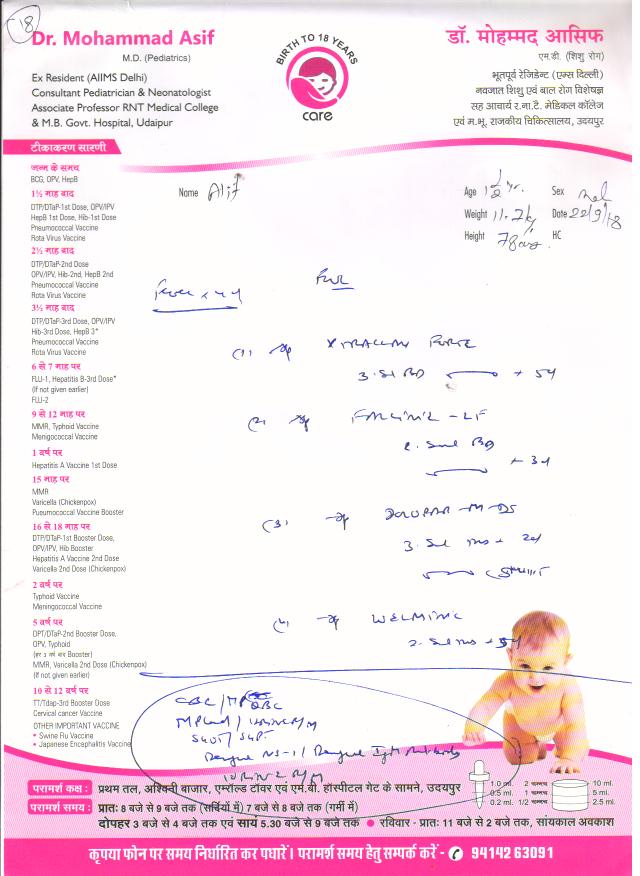 18
Dr. Mohammad Asif
M.D. (Pediatrics)
Ex Resident (AIIMS Delhi)
Consultant Pediatrician & Neonatologist
Associate Professor RNT Medical College
& M.B. Govt. Hospital, Udaipur
BIRTH TO 18 YEARS
care
डॉ. मोहम्मद आसिफ
एम.डी. (शिशु रोग)
भूतपूर्व रेजिडेन्ट (एम्स दिल्ली)
नवजात शिशु एवं बाल रोग विशेषज्ञ
सह आचार्य र.ना.टै. मेडिकल कॉलेज
एवं म.भू. राजकीय चिकित्सालय, उदयपुर
टीकाकरण सारणी
जन्म के समय
BCG, OPV, HepB
1½ माह बाद
DTP/DTaP-1st Dose, OPV/IPV
HepB 1st Dose, Hib-1st Dose
Pneumococcal Vaccine
Rota Virus Vaccine
2½ माह बाद
DTP/DTaP-2nd Dose
OPV/IPV, Hib-2nd, HepB 2nd
Pneumococcal Vaccine
Rota Virus Vaccine
3½ माह बाद
DTP/DTaP-3rd Dose, OPV/IPV
Hib-3rd Dose, HepB 3*
Pneumococcal Vaccine
Rota Virus Vaccine
6 से 7 माह पर
FLU-1, Hepatitis B-3rd Dose*
(If not given earlier)
FLU-2
9 से 12 माह पर
MMR, Typhoid Vaccine
Menigococcal Vaccine
1 वर्ष पर
Hepatitis A Vaccine 1st Dose
15 माह पर
MMR
Varicella (Chickenpox)
Pueumococcal Vaccine Booster
16 से 18 माह पर
DTP/DTaP-1st Booster Dose,
OPV/IPV, Hib Booster
Hepatitis A Vaccine 2nd Dose
Varicella 2nd Dose (Chickenpox)
2 वर्ष पर
Typhoid Vaccine
Meningococcal Vaccine
5 वर्ष पर
DPT/DTaP-2nd Booster Dose,
OPV, Typhoid
(हर 3 वर्ष बाद Booster)
MMR, Varicella 2nd Dose (Chickenpox)
(If not given earlier)
10 से 12 वर्ष पर
TT/Tdap-3rd Booster Dose
Cervical cancer Vaccine
OTHER IMPORTANT VACCINE
• Swine Flu Vaccine
• Japanese Encephalitis Vaccine
Name Alif
Age 1½ yr. Sex Mal
Weight 11.7kg Date 22/9/18
Height 78 HC
Fever x 4d
(1) XTRACLAV FORTE
3. BD + 5d
(2)
BD
+ 3d
(3)
3.
(4) WELMINIC
2. + 5d
CBC / MP QBC
SGOT / SGPT
Dengue NS-1 / Dengue Antibody
1.0 ml. 2 चम्मच 10 ml.
0.5 ml. 1 चम्मच 5 ml.
0.2 ml. 1/2 चम्मच 2.5 ml.
परामर्श कक्ष : प्रथम तल, अश्विनी बाजार, एम्रॉल्ड टॉवर एवं एम.बी. हॉस्पीटल गेट के सामने, उदयपुर
परामर्श समय : प्रातः 8 बजे से 9 बजे तक (सर्दियों में) 7 बजे से 8 बजे तक (गर्मी में)
दोपहर 3 बजे से 4 बजे तक एवं सायं 5.30 बजे से 9 बजे तक • रविवार - प्रातः 11 बजे से 2 बजे तक, सांयकाल अवकाश
कृपया फोन पर समय निर्धारित कर पधारें। परामर्श समय हेतु सम्पर्क करें - 94142 63091